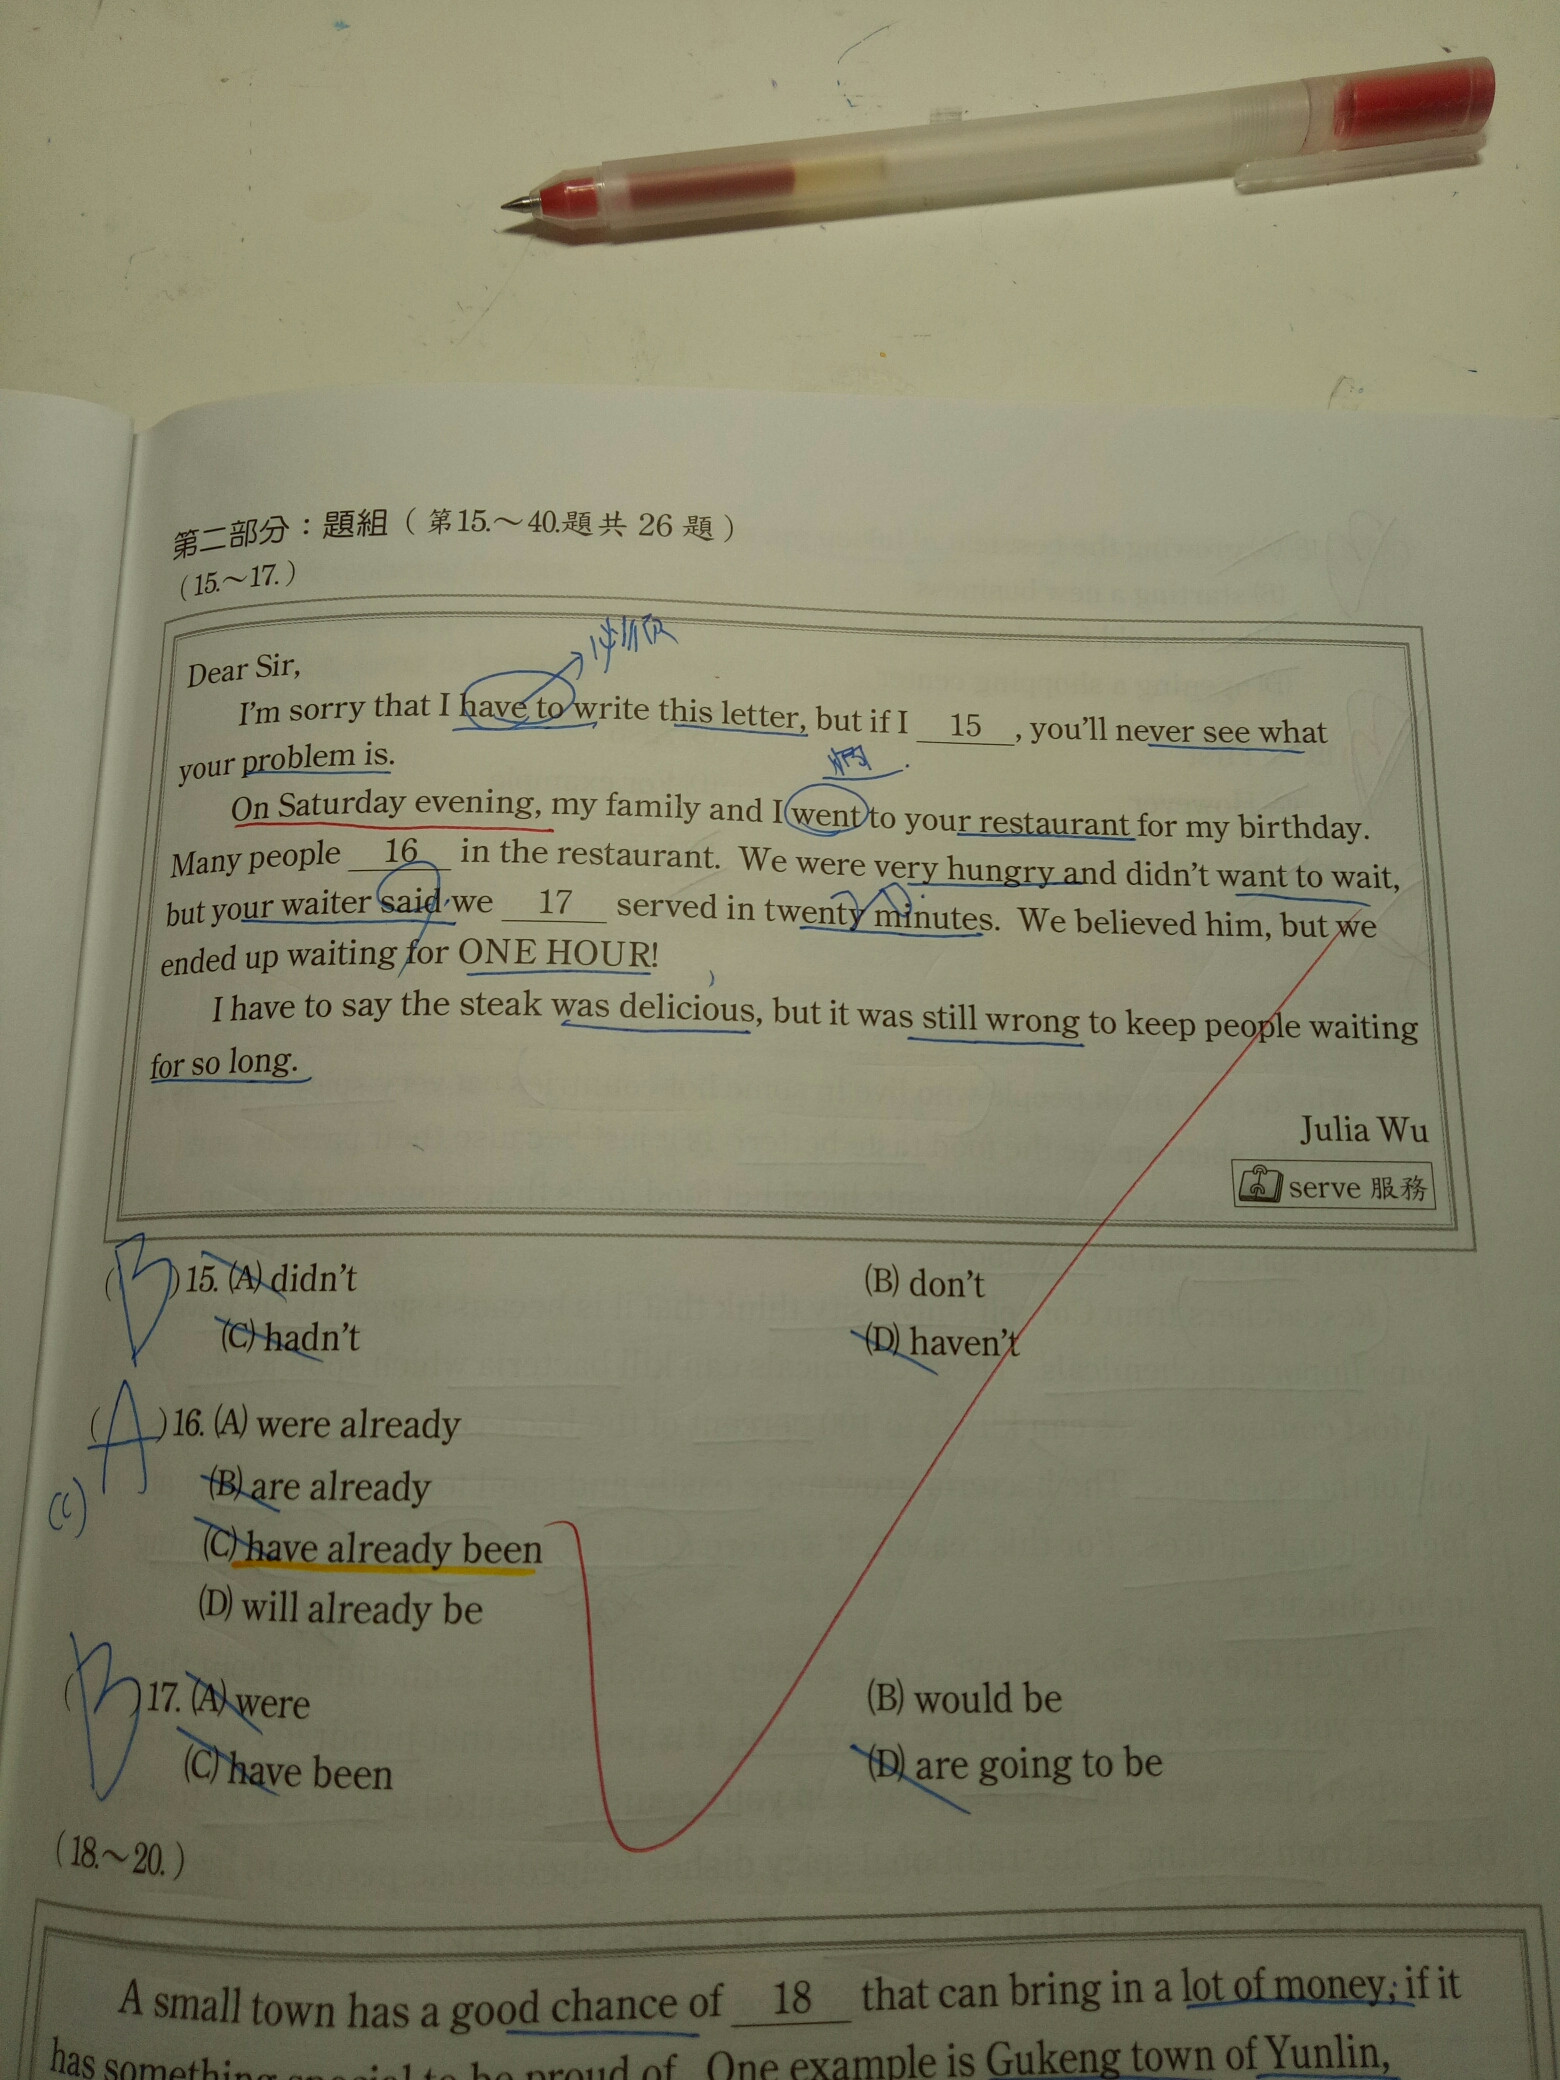 第二部分：題組（第15.～40.題共 26 題）
（15.～17.）
Dear Sir,
I'm sorry that I have to write this letter, but if I 15 , you'll never see what
your problem is.
On Saturday evening, my family and I went to your restaurant for my birthday.
Many people 16 in the restaurant. We were very hungry and didn't want to wait,
but your waiter said we 17 served in twenty minutes. We believed him, but we
ended up waiting for ONE HOUR!
I have to say the steak was delicious, but it was still wrong to keep people waiting
for so long.
Julia Wu
serve 服務
( B ) 15. (A) didn't (B) don't
(C) hadn't (D) haven't
( A ) 16. (A) were already
(B) are already
(C) (C) have already been
(D) will already be
( B ) 17. (A) were (B) would be
(C) have been (D) are going to be
（18.～20.）
A small town has a good chance of 18 that can bring in a lot of money; if it
has something special to be proud of. One example is Gukeng town of Yunlin,